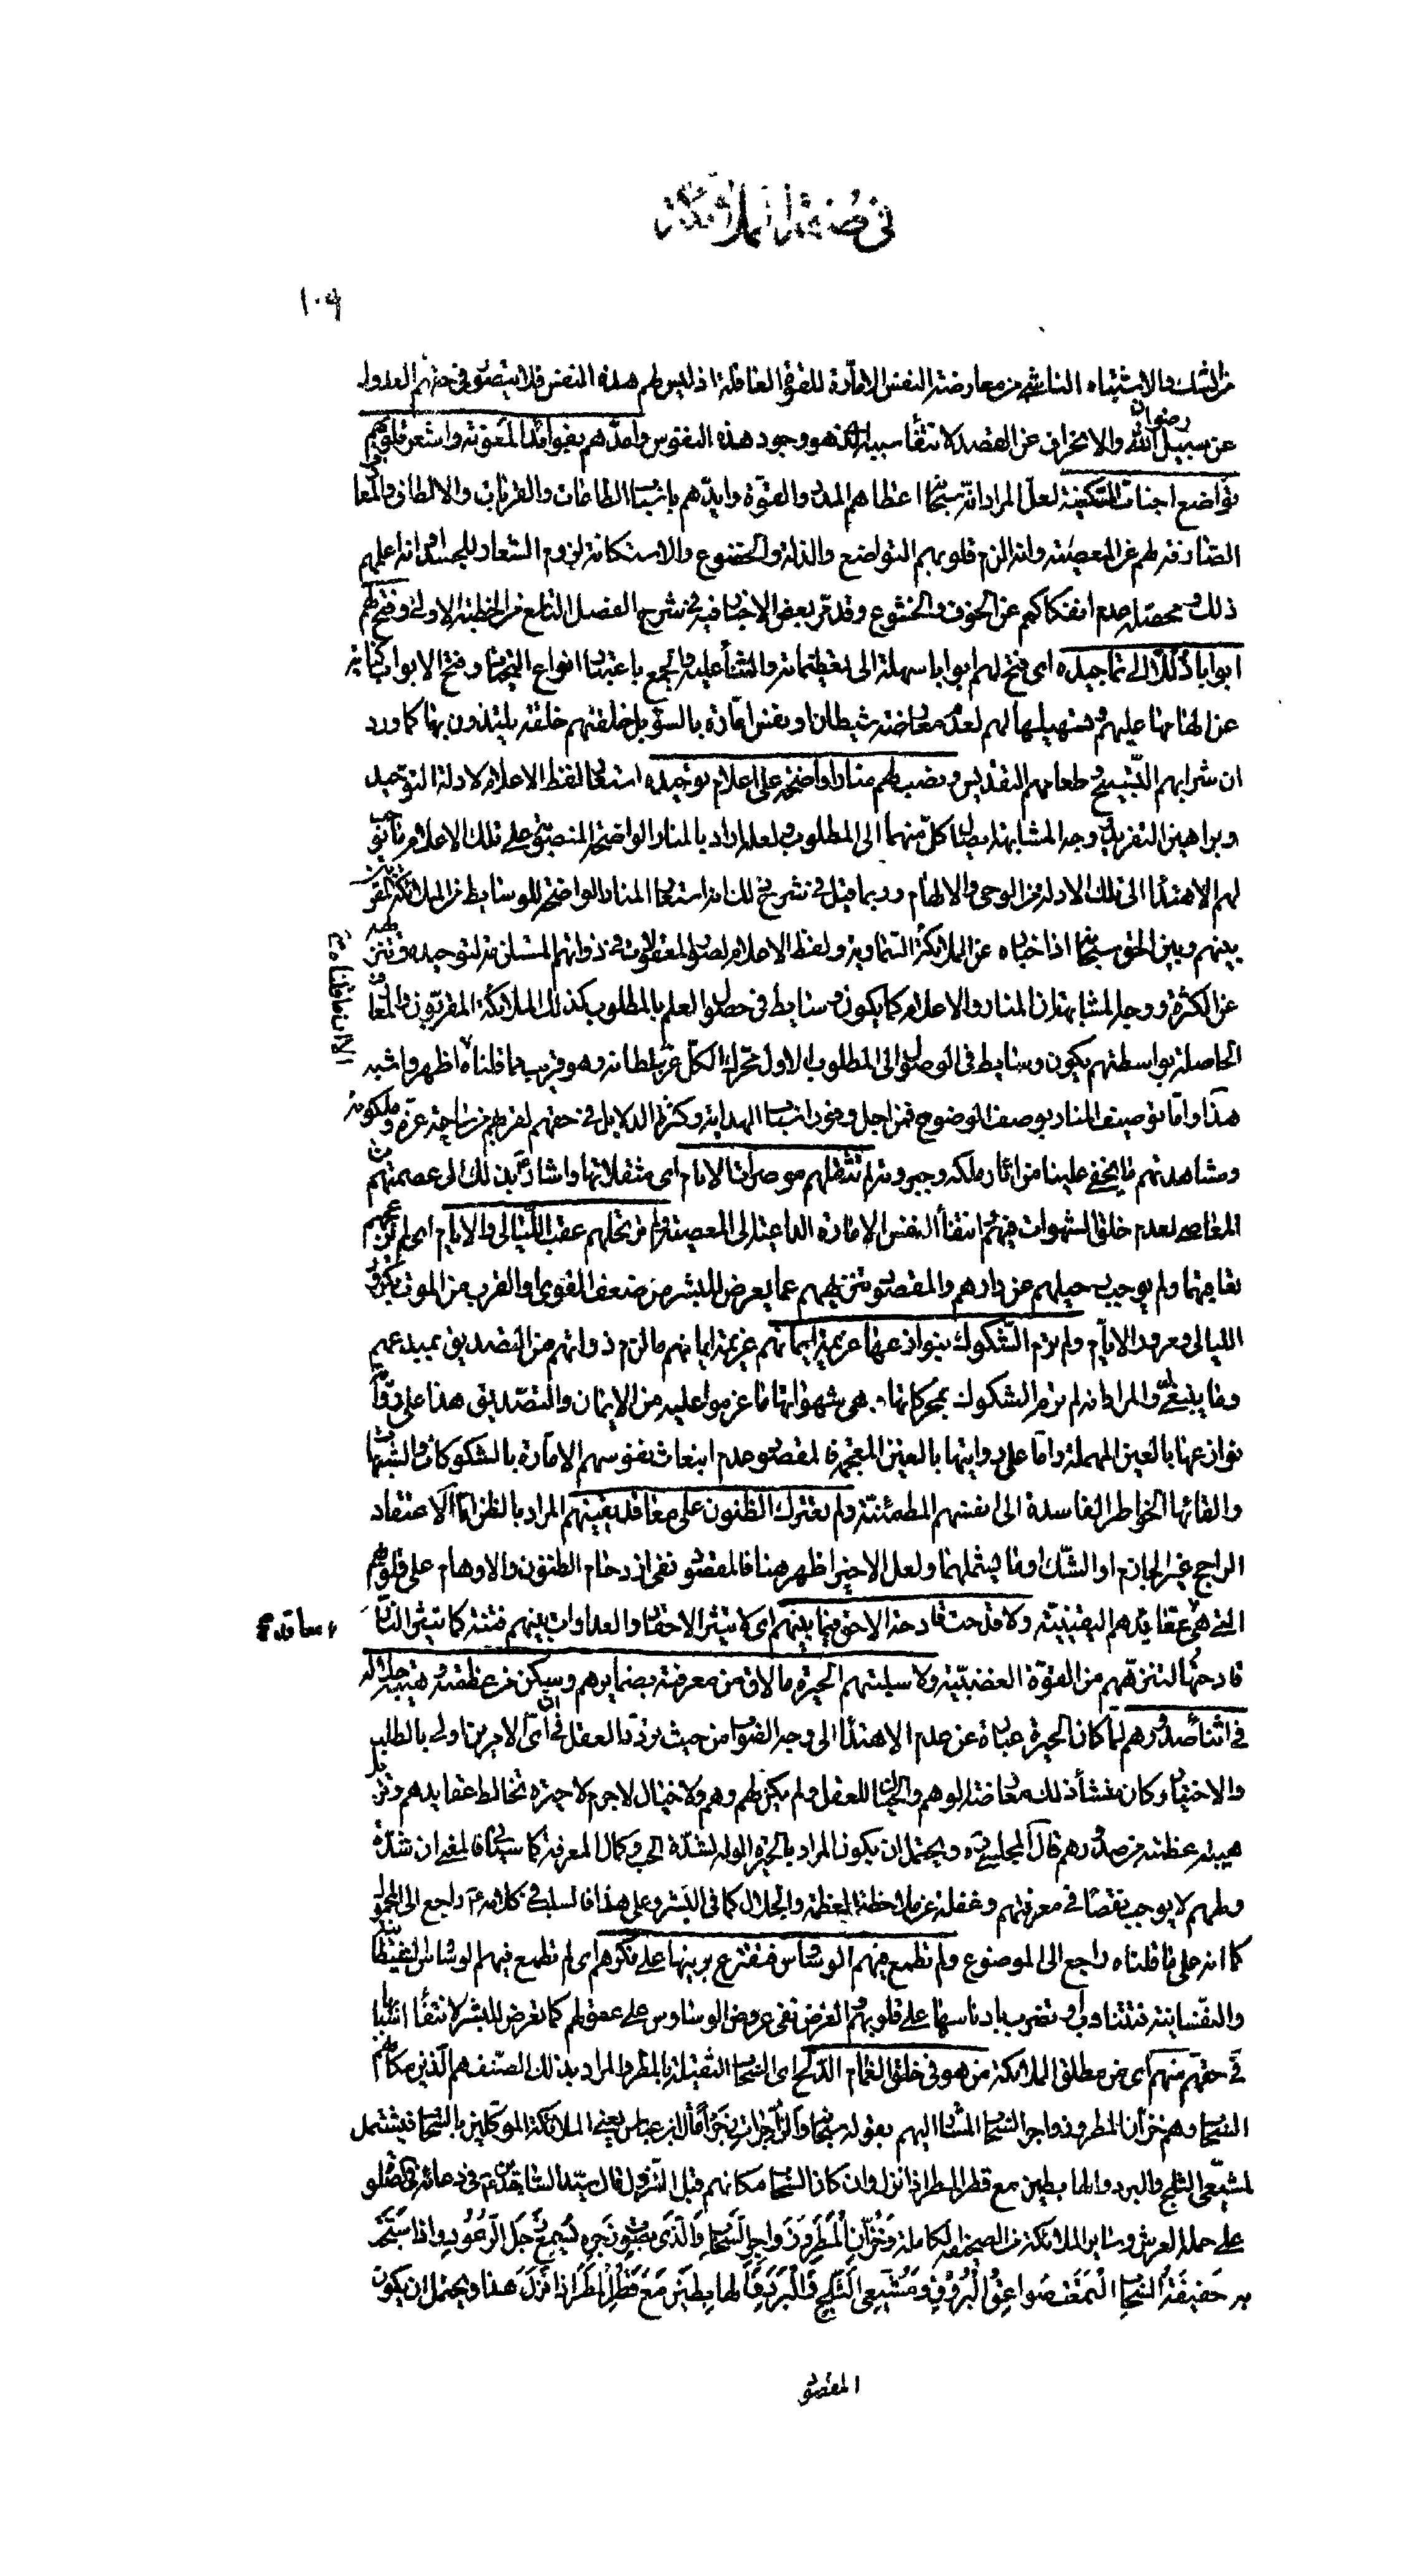 في صفة الملائكة
١٠٩
من الشك والاشتباه الناشي من معارضة النفس الامارة للقوة العاقلة اذ ليس لهم هذه النفس فلا يتصور في حقهم العدول
عن سبيل رضوان الله والانحراف عن القصد لانتفاء سببه الذي هو وجود هذه النفوس وامدهم بفوائد المعونة واشعر قلوبهم
تواضع اخبات السكينة لعل المراد انه سبحانه اعطاهم المدد والقوة وايدهم باسباب الطاعات والقربات والالطاف والمعارف
الصارفة لهم عن المعصية وانه الزم قلوبهم التواضع والذلة والخضوع والاستكانة لزوم الشعار للجسد او انه اعلمهم
ذلك ومحصله عدم انفكاكهم عن الخوف والخشوع وقد مر بعض الاخبار فيه في شرح الفصل التاسع من الخطبة الاولى وفتح لهم
ابوابا ذللا الى تماجيده اى فتح لهم ابوابا سهلة الى تعظيماته والثناء عليه والجمع باعتبار انواع التمجيد وفتح الابواب كناية
عن الهامها عليهم وتسهيلها لهم لعدم معارضة شيطان او نفس امارة بالسوء بل خلقتهم خلقة يلتذون بها كما ورد
ان شرابهم التسبيح وطعامهم التقديس ونصب لهم منارا واضحة على اعلام توحيده استعار لفظ الاعلام لادلة التوحيد
وبراهين التفريد ووجه المشابهة ايصال كل منهما الى المطلوب ولعله اراد بالمنار الواضحة المنصوبة على تلك الاعلام ما يوجب
لهم الاهتداء الى تلك الادلة من الوحى والالهام وربما قيل في شرح ذلك انه استعار المنار الواضحة للوسايط من الملائكة المقربين
بينهم وبين الحق سبحانه اذ اخباره عن الملائكة السماوية ولفظ الاعلام لصور المعقولات في ذواتهم المستلزمة لتوحيده وتنزيهه
عن الكثرة ووجه المشابهة ان المنار والاعلام كما يكون وسايط في حصول العلم بالمطلوب كذلك الملائكة المقربون والمعارف
الحاصلة بواسطتهم يكون وسايط في الوصول الى المطلوب الاول محرك الكل عز سلطانه وهو قريب مما قلناه الا ان ما قلناه اظهر واشبه
هذا واما توصيف المنار بوصف الوضوح فمن اجل وفور اسباب الهداية وكثرة الدلايل في حقهم لقربهم من ساحة عزه وملكوته
ومشاهدتهم ما يخفى علينا من اثار ملكه وجبروته لم تثقلهم موصرات الاثام اى مثقلاتها واشار بذلك الى عصمتهم من
المعاصي لعدم خلق الشهوات فيهم وانتفاء النفس الامارة الداعية الى المعصية ولم ترتحلهم عقب الليالى والايام اى لم تزعجهم
تعاقبهما ولم يوجب رحيلهم عن دارهم والمقصود تنزيههم عما يعرض للبشر من ضعف القوى والقرب من الموت بكرور
الليالى ومرور الايام ولم ترم الشكوك بنوازعها عزيمة ايمانهم عزيمة ايمانهم ما لزم ذواتهم من التصديق بمبدعهم
وما ينبغي له والمراد انه لم ترم الشكوك بمحركاتها وهى شهواتها ما عزموا عليه من الايمان والتصديق هذا على رواية
نوازعها بالعين المهملة واما على روايتها بالغين المعجمة فالمقصود عدم انبعاث نفوسهم الامارة بالشكوكات والشبهات
والقائها الخواطر الفاسدة الى انفسهم المطمئنة ولم تعترك الظنون على معاقد يقينهم المراد بالظن اما الاعتقاد
الراجح غير الجازم او الشك او ما يشملهما ولعل الاخير اظهر هنا فالمقصود نفى ازدحام الظنون والاوهام على قلوبهم
التي هى عقايدهم اليقينية ولا قدحت قادحة الاحن فيما بينهم اى لا تثير الاحقاد والعداوات بينهم فتنة كما تثير النار
قادحتها لتنزههم من القوة الغضبية ولا سلبتهم الحيرة ما لاق من معرفته بضمايرهم وسكن من عظمته وهيبة جلاله
في اثناء صدورهم لما كان الحيرة عبارة عن عدم الاهتداء الى وجه الصواب من حيث تردد العقل في ان اى الامرين اولى بالطلب
والاختيار وكان منشأ ذلك معارضة الوهم والخيال للعقل ولم يكن لهم وهم ولا خيال لاجرم لا حيرة تخالط عقايدهم وتزيل
هيبة عظمته من صدورهم قال المجلسي ره ويحتمل ان يكون المراد بالحيرة الوله لشدة الحب وكمال المعرفة كما سيأتي فالمعنى ان شدة
ولههم لا يوجب نقصا في معرفتهم وغفلة عن ملاحظة العظمة والجلال كما في البشر وعلى هذا فالسلب في كلامه ع راجع الى المحمول
كما انه على ما قلناه راجع الى الموضوع ولم تطمع فيهم الوساوس فتقترع برينها على فكرهم اى لم تطمع فيهم الوساوس الشيطانية
والنفسانية فتتناوب وتضرب بادناسها على قلوبهم والغرض نفى عروض الوساوس على عقولهم كما تعرض للبشر لانتفاء اسبابها
في حقهم منهم اى من مطلق الملائكة من هو في خلق الغمام الدلح اى السحاب الثقيلة بالمطر والمراد بذلك الصنف هم الذين مكانهم
السحاب وهم خزان المطر وزواجر السحاب المشار اليهم بقوله سبحانه والزاجرات زجرا قال ابن عباس يعنى الملائكة الموكلين بالسحاب فيشتمل
لمشيعى الثلج والبرد والهابطين مع قطر المطر اذا نزل وان كان السحاب مكانهم قبل النزول قال سيد الساجدين ع في دعائه في الصلوة
على حملة العرش وساير الملائكة من الصحيفة الكاملة وخزان المطر وزواجر السحاب والذى بصوت زجره يسمع زجل الرعود واذا سبحت
به حفيفة السحاب التمعت صواعق البروق ومشيعى الثلج والبرد والهابطين مع قطر المطر اذا نزل هذا ويحتمل ان يكون
المقصود